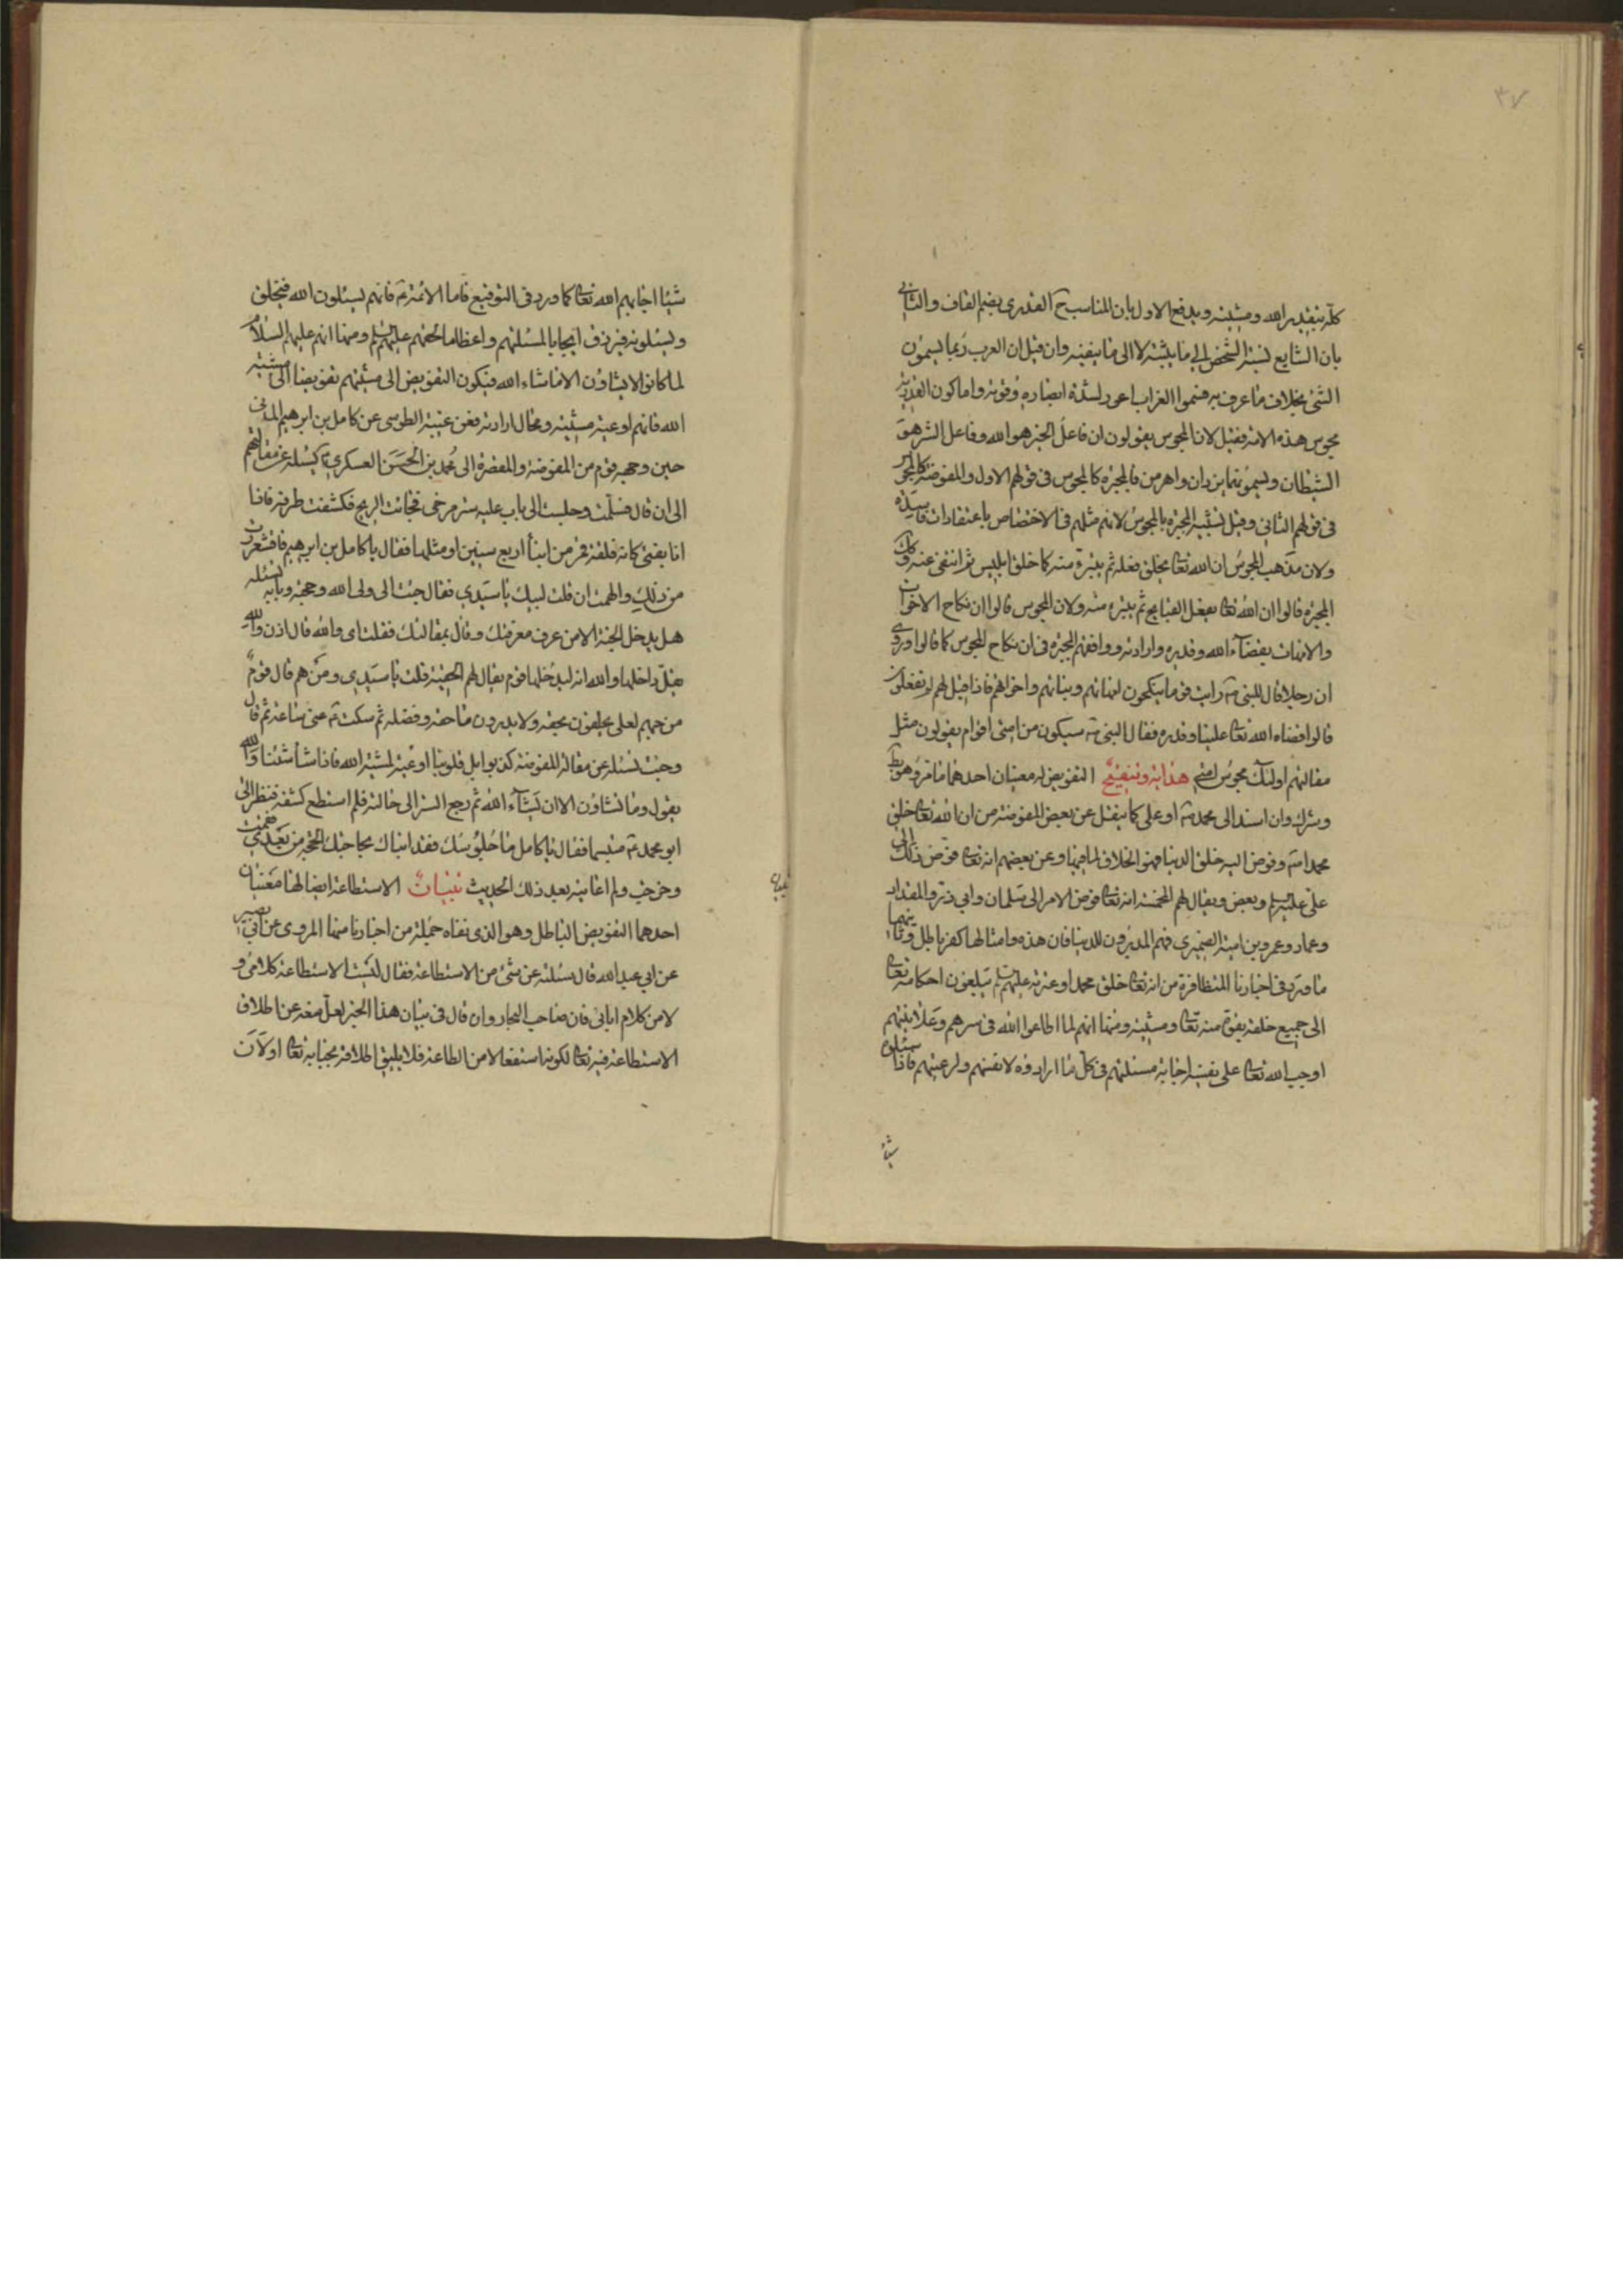 ٣٧
كله بتقدير الله ومشيته ويدفع الاول بان المناسب ح القدرى بضم القاف والثانى
بان الشايع نسبة الشخص الى ما يثبته لا الى ما ينفيه وان قيل ان العرب ربما يسمون
الشئ بخلاف ما عرف به فسموا الغراب اعور لشدة ابصاره وقوته واما كون القدرية
مجوس هذه الامة فقيل لان المجوس يقولون ان فاعل الخير هو الله وفاعل الشر هو
الشيطان ويسمونهما يزدان واهرمن فالمجبرة كالمجوس فى قولهم الاول والمفوضة كالمجوس
فى قولهم الثانى وقيل تشبيه المجبرة بالمجوس لانهم مثلهم فى الاختصاص باعتقادات فاسدة
ولان مذهب المجوس ان الله تعا يخلق فعله ثم يتبرء منه كما خلق ابليس ثم انتفى عنه وكك
المجبرة قالوا ان الله تعا يفعل القبايح ثم يتبرء منه ولان المجوس قالوا ان نكاح الاخوات
والامهات بقضآء الله وقدره وارادته ووافقهم المجبرة فى ان نكاح المجوس كما قالوا وروى
ان رجلا قال للنبى ص رايت قوما ينكحون امهاتهم وبناتهم واخواتهم فاذا قيل لهم لم تفعلون
قالوا قضاه الله تعا علينا وقدره فقال النبى ص سيكون من امتى اقوام يقولون مثل
مقالتهم اولئك مجوس امتى هداية وتنقيح التفويض له معنيان احدهما ما مر وهو بط
وشرك وان اسند الى محمد ص او على كما ينقل عن بعض المفوضة من ان الله تعا خلق
محمدا ص وفوض اليه خلق الدنيا فهو الخلاق لما فيها وعن بعضهم انه تعا فوض ذلك الى
على عليه السلم وبعض ويقال لهم المخمسة انه تعا فوض الامر الى سلمان وابى ذر والمقداد
وعمار وعمرو بن امية الضميرى فهم المدبرون للدنيا فان هذه وامثالها كفر باطل وثانيهما
ما ورد فى اخبارنا المتظافرة من انه تعا خلق محمدا وعترته عليهم السلم يبلغون احكامه تعا
الى جميع خلقه بقوة منه تعا ومشيته ومنها انهم لما اطاعوا الله فى سرهم وعلانيتهم
اوجب الله تعا على نفسه اجابة مسئلتهم فى كل ما ارادوه لانفسهم ولرعيتهم فاذا سئلوه
شيئا
شيئا اجابهم الله تعا كما ورد فى التوقيع فاما الائمة ع فانهم يسئلون الله فيخلق
ويسئلونه فيرزق ايجابا لمسئلتهم واعظاما لحقهم عليهم السلم ومنها انهم عليهم السلام
لما كانوا لا يشاؤن الا ما شاء الله فيكون التفويض الى مشيتهم تفويضا الى مشية
الله فانهم اوعية مشيته ومحال ارادته فعن غيبة الطوسى عن كامل بن ابرهيم المدنى
حين وجهه قوم من المفوضة والمقصرة الى محمد بن الحسن العسكرى ع ليسئله عن مقالتهم
الى ان قال فسلمت وجلست الى باب عليه ستر مرخى فجائت الريح فكشفت طرفه فاذا
انا بفتى كانه فلقة قمر من ابناء اربع سنين او مثلها فقال يا كامل بن ابرهيم فاقشعررت
من ذلك والهمت ان قلت لبيك يا سيدى فقال جئت الى ولى الله وحجته وبابه لتسئله
هل يدخل الجنة الا من عرف معرفتك وقال بمقالتك فقلت اى والله قال اذن والله
يقل داخلها والله انه ليدخلها قوم يقال لهم الحقية قلت يا سيدى ومن هم قال قوم
من حبهم لعلى يحلفون بحقه ولا يدرون ما حقه وفضله ثم سكت ع عنى ساعة ثم قال
وجئت تسئله عن مقالة المفوضة كذبوا بل قلوبنا اوعية لمشية الله فاذا شاء شئنا والله
يقول وما تشاؤن الا ان يشآء الله ثم رجع الستر الى حالته فلم استطع كشفه فنظر الى
ابو محمد ع متبسما فقال يا كامل ما جلوسك فقد انباك بحاجتك الحجة من بعدى فقمت
وخرجت ولم اعاينه بعد ذلك الحديث تبيان الاستطاعة ايضا لها معنيان
احدهما التفويض الباطل وهو الذى نفاه جملة من اخبارنا منها المروى عن ابى بصير
عن ابى عبد الله قال سئلته عن شئ من الاستطاعة فقال ليست الاستطاعة كلامى و
لا من كلام ابائى فان صاحب البحار وان قال فى بيان هذا الخبر لعل منعه عن اطلاق
الاستطاعة فيه تعا لكونه استفعالا من الطاعة فلا يليق اطلاقه بجنابه تعا اولان
تبيان